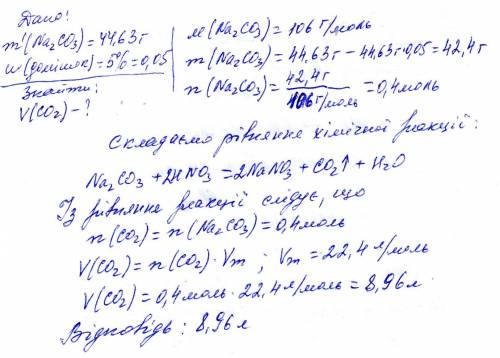 Дано:
m'(Na₂CO₃)=44,63г
w(домішок)=5%=0,05
Знайти:
V(CO₂)-?
M(Na₂CO₃)=106 г/моль
m(Na₂CO₃)=44,63г-44,63г·0,05=42,4г
n(Na₂CO₃)=42,4г/106г/моль=0,4моль
Складаємо рівняння хімічної реакції:
Na₂CO₃+2HNO₃=2NaNO₃+CO₂↑+H₂O
Із рівняння реакції слідує, що
n(CO₂)=n(Na₂CO₃)=0,4моль
V(CO₂)=n(CO₂)·Vm; Vm=22,4 л/моль
V(CO₂)=0,4моль·22,4л/моль=8,96л
Відповідь: 8,96л